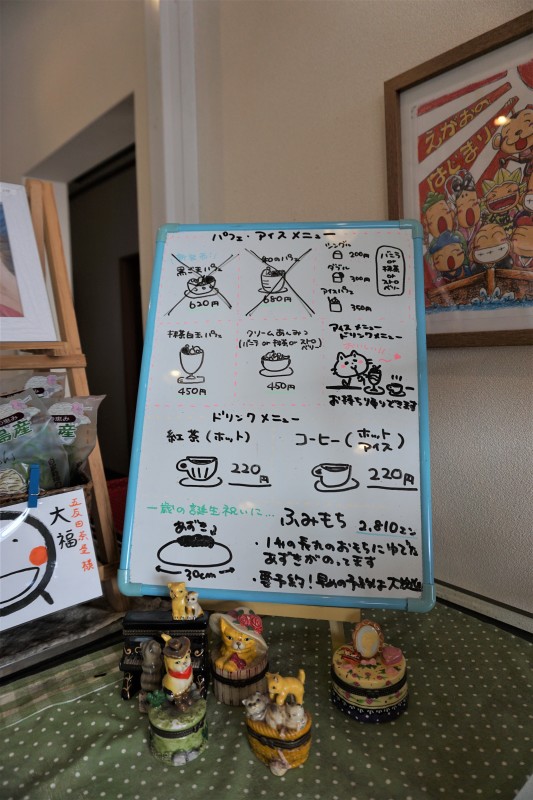 パフェ・アイスメニュー
黒ごまパフェ
620円
和のパフェ
680円
シングル
200円
ダブル
300円
アイスパフェ
350円
バニラ
or
抹茶
or
ストロベリー
抹茶白玉パフェ
450円
クリームあんみつ
(バニラ or 抹茶 or ストロベリー)
450円
アイスメニュー
ドリンクメニュー
お持ち帰りできます
ドリンクメニュー
紅茶(ホット)
220円
コーヒー(ホット
アイス)
220円
一歳の誕生祝いに…
ふみもち
2,810
あずき
30cm
・1升の長丸のおもちにゆでた
あずきがのってます
・要予約!早めの予約は
えがおの
はじまり
島産
大福
様